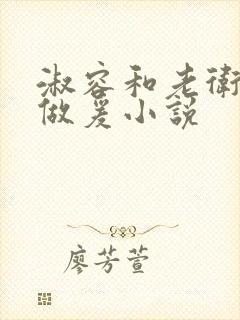 淑容和老衛
做爰小説
廖芳萱